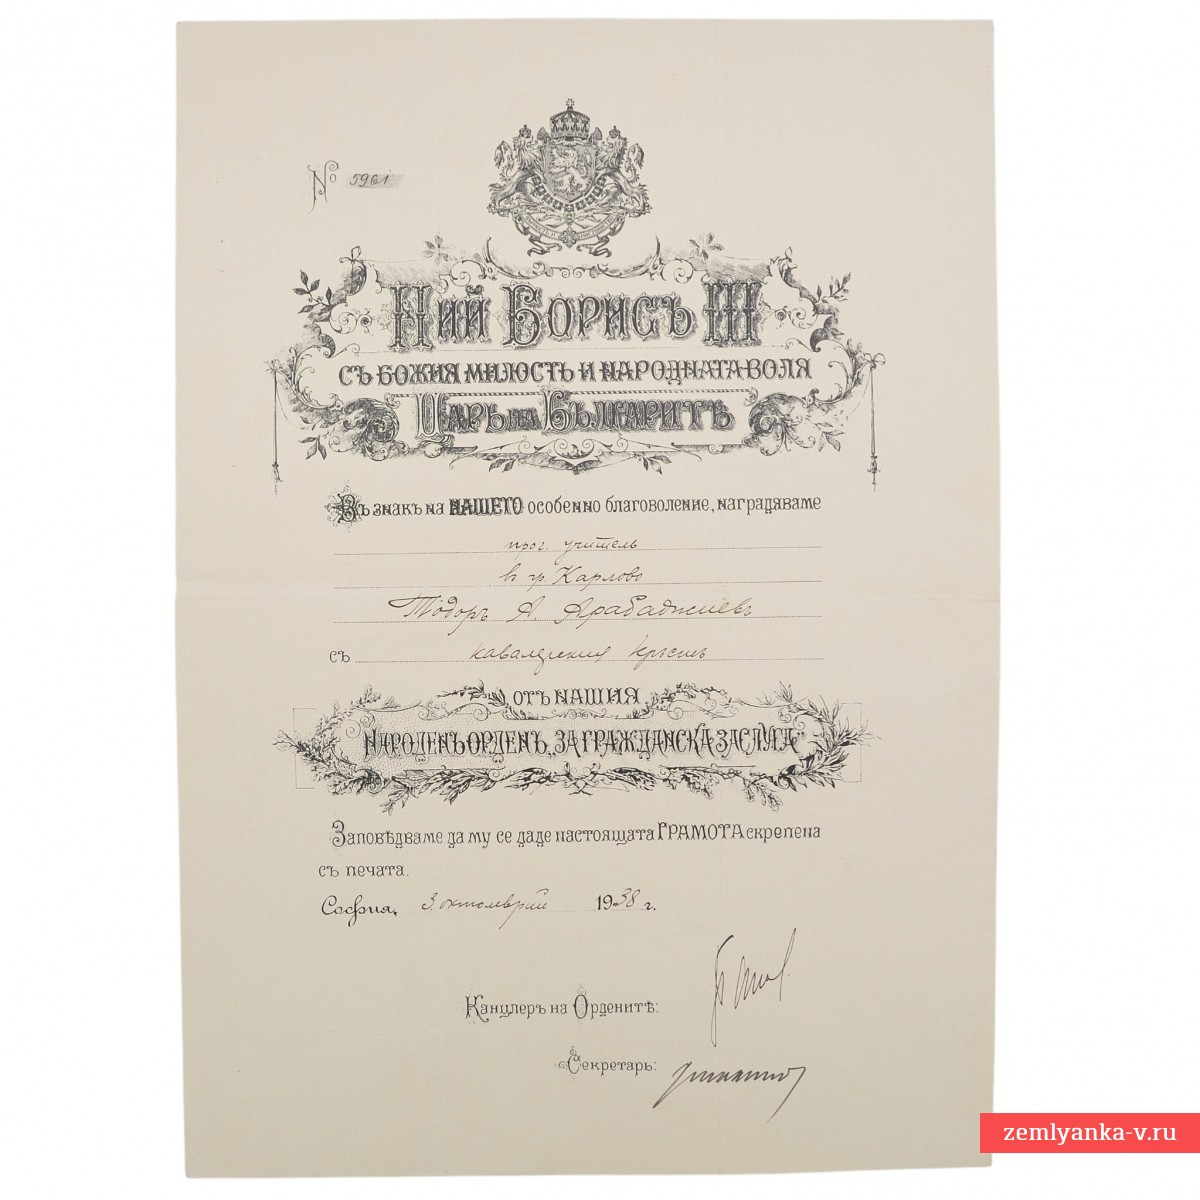 № 5961
Ний Борисъ III
съ Божия милость и народната воля
Царь на Българитѣ
Въ знакъ на НАШЕТО особенно благоволение, наградяваме
прог. учитель
въ гр. Карлово
Тодоръ А. Арабаджиевъ
съ кавалерския кръстъ
отъ нашия
Народенъ орденъ „За гражданска заслуга“
Заповѣдваме да му се даде настоящата ГРАМОТА скрепена
съ печата.
София, 3 октомврий 1938 г.
Канцлеръ на Орденитѣ:
Секретарь:
zemlyanka-v.ru